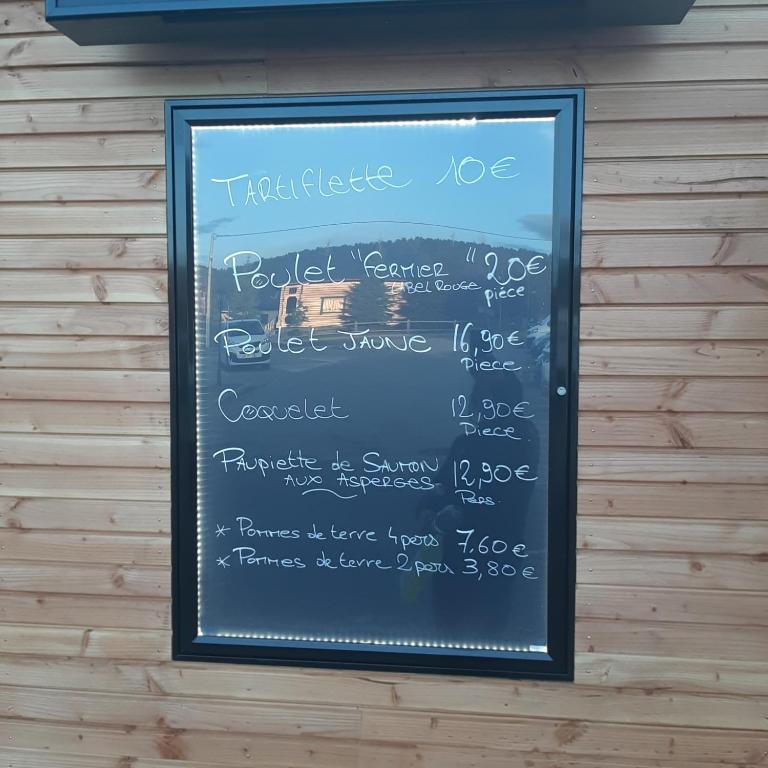 TARTIFLETTE 10€
POULET "FERMIER" 20€
LABEL ROUGE pièce
POULET JAUNE 16,90€
Piece
COQUELET 12,90€
Piece
PAUPIETTE de SAUMON 12,90€
AUX ASPERGES Pers.
* POMMES de terre 4 pers 7,60€
* POMMES de terre 2 pers 3,80€